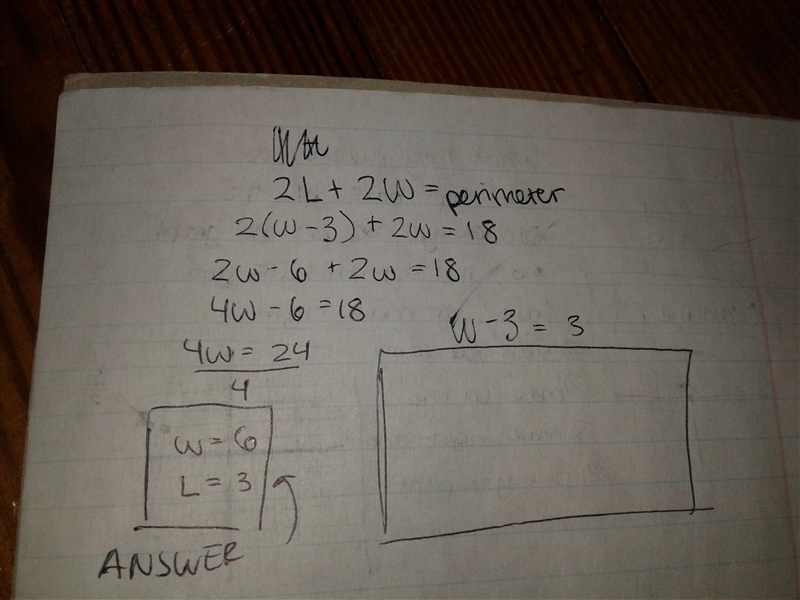 2L + 2W = perimeter
2(w - 3) + 2w = 18
2w - 6 + 2w = 18
4w - 6 = 18
4w = 24
4
w = 6
L = 3
ANSWER
W - 3 = 3